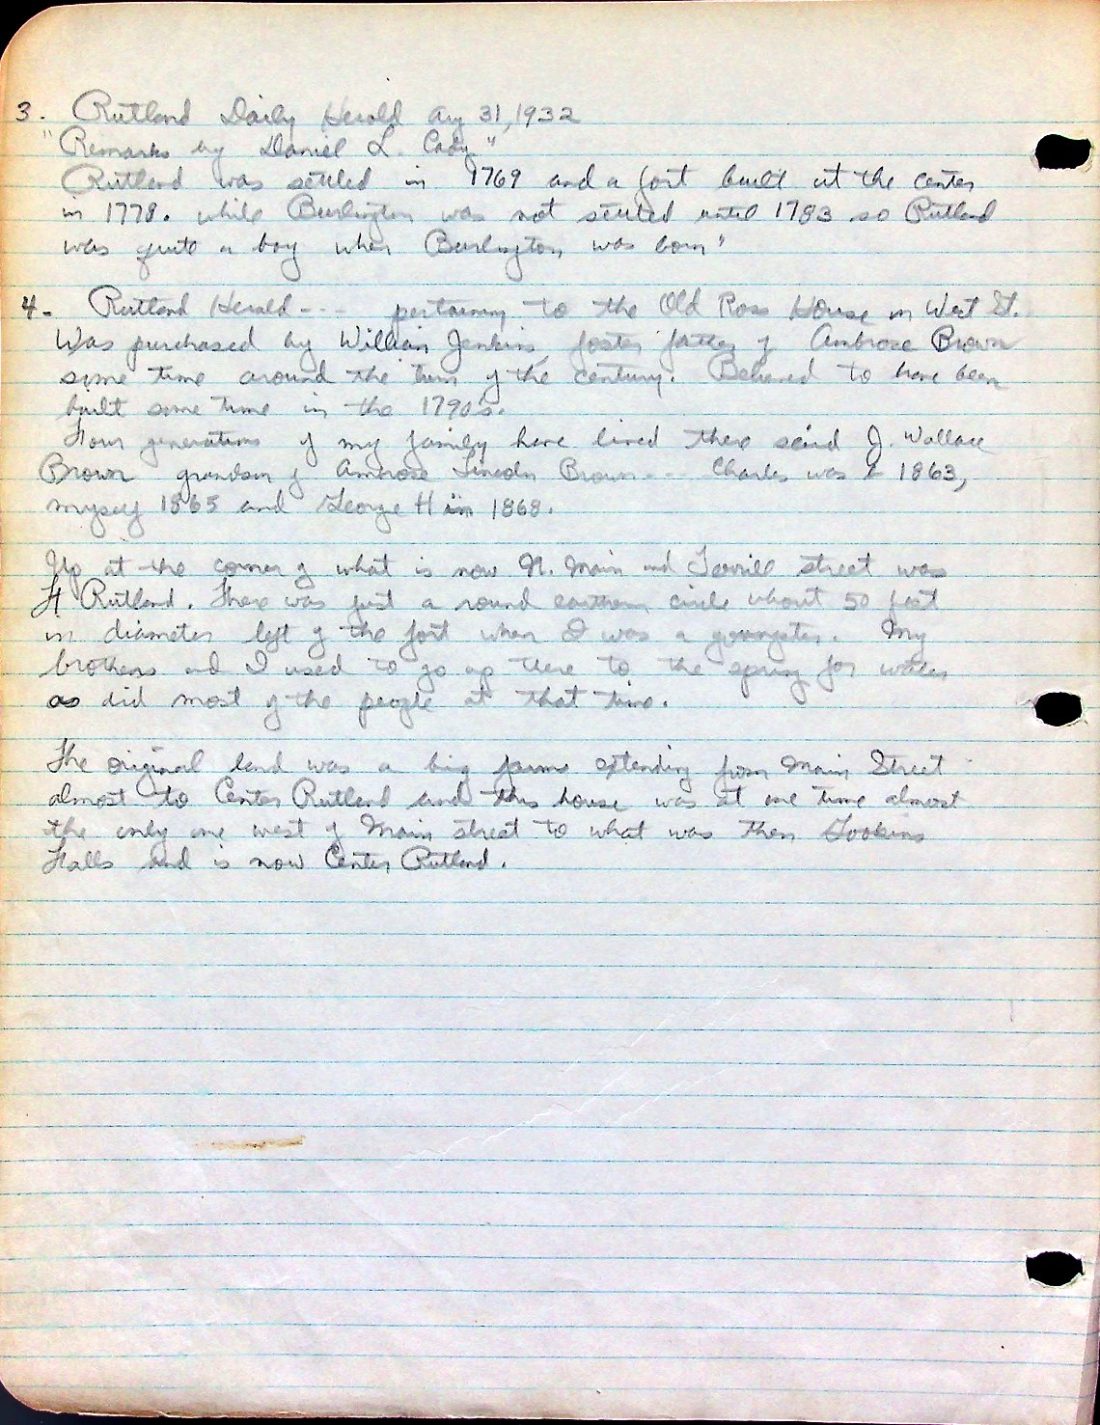 3. Rutland Daily Herald Aug 31, 1932
"Remarks by Daniel L. Cady"
Rutland was settled in 1769 and a fort built at the center
in 1778. while Burlington was not settled until 1783 so Rutland
was quite a boy when Burlington was born"
4- Rutland Herald --- pertaining to the Old Ross House on West St.
Was purchased by William Jenkins, foster father of Ambrose Brown
some time around the turn of the century. Believed to have been
built some time in the 1790's.
Four generations of my family have lived there said J. Wallace
Brown grandson of Ambrose Lincoln Brown --- Charles was b 1863,
myself 1865 and George H in 1868.
Up at the corner of what is now N. Main and Terrill street was
Ft Rutland. There was just a round earthern circle about 50 feet
in diameter left of the fort when I was a youngster. My
brothers and I used to go up there to the spring for water
as did most of the people at that time.
The original land was a big farm extending from Main Street
almost to Center Rutland and this house was at one time almost
the only one west of Main street to what was then Gookins
Falls and is now Center Rutland.